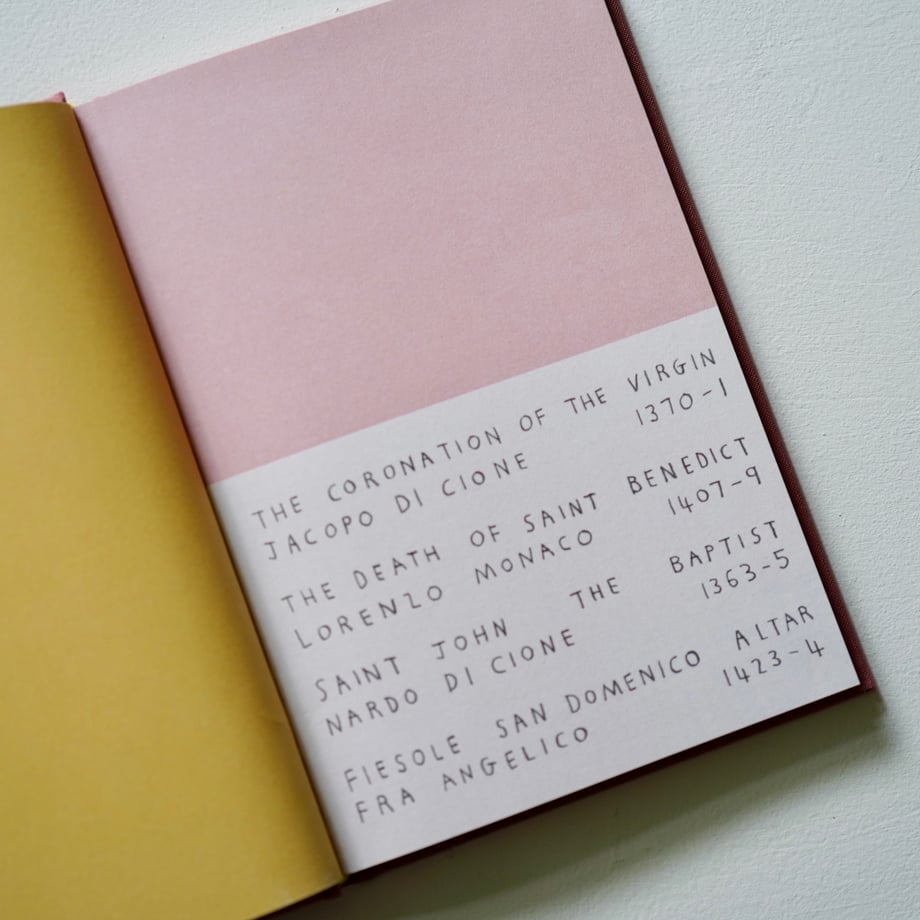 THE CORONATION OF THE VIRGIN
JACOPO DI CIONE 1370-1
THE DEATH OF SAINT BENEDICT
LORENZO MONACO 1407-9
SAINT JOHN THE BAPTIST
NARDO DI CIONE 1363-5
FIESOLE SAN DOMENICO ALTAR
FRA ANGELICO 1423-4